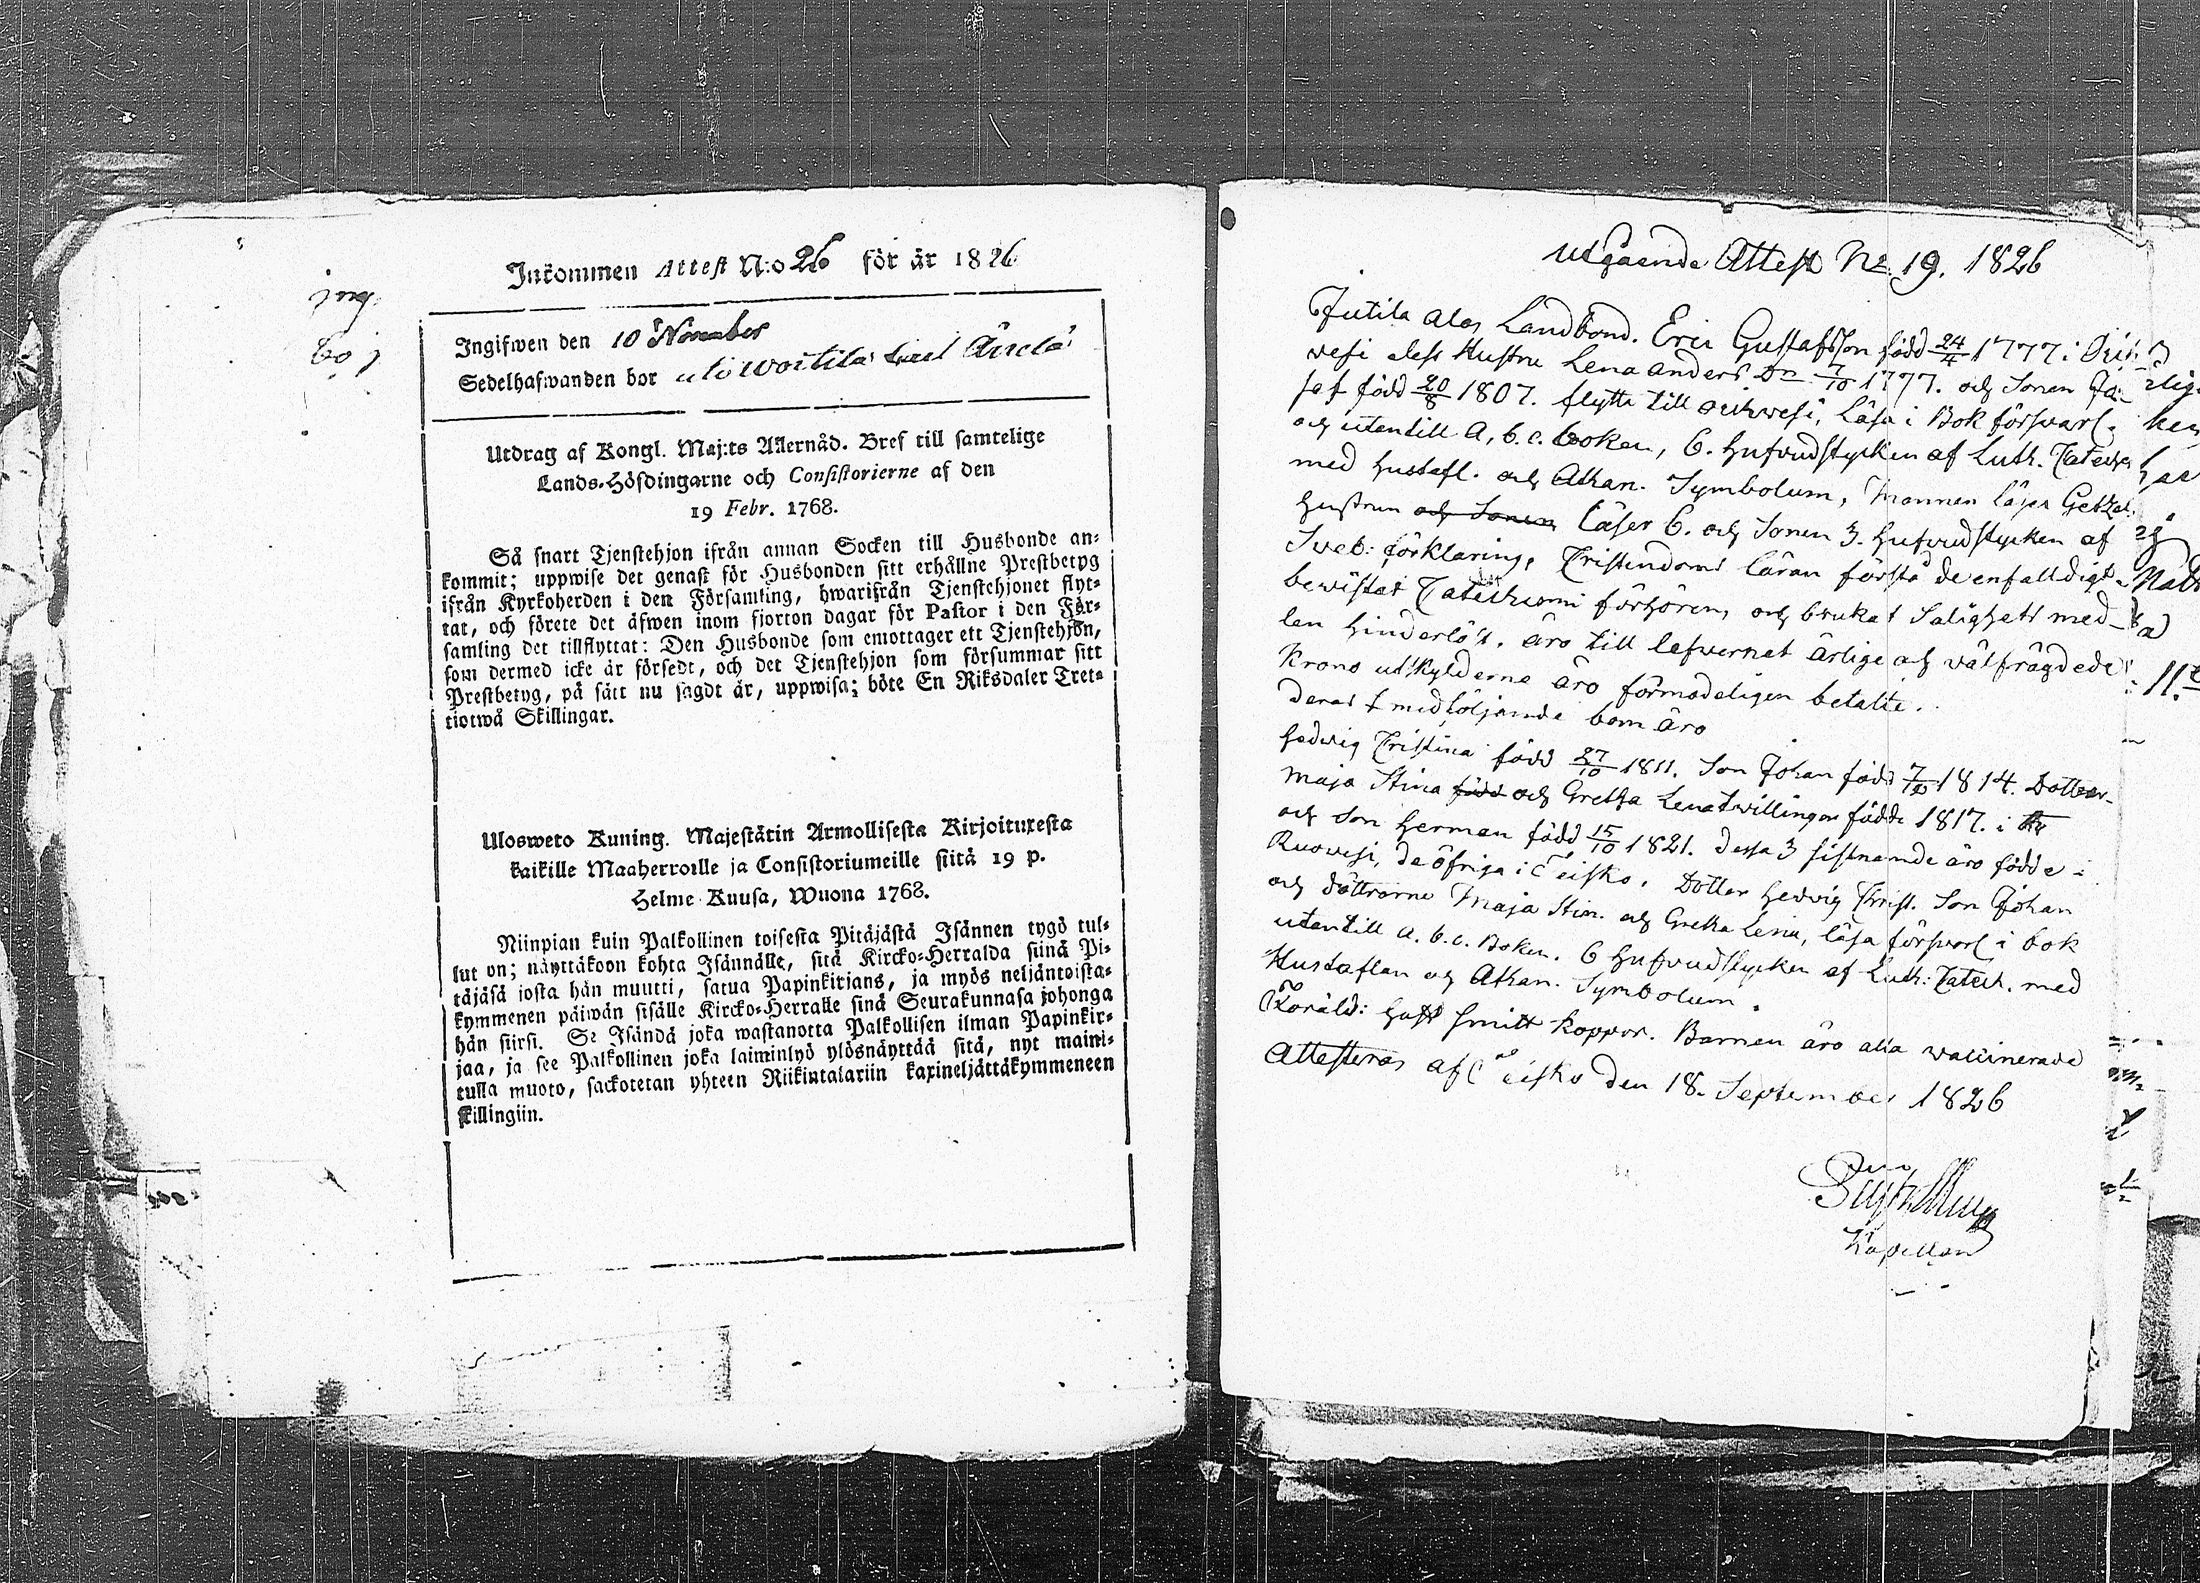 Inkommen Attest N:o 26 för år 1826
Ingifwen den 10 November
Sedelhafwanden bor
Utdrag af Kongl. Maj:ts Allernåd. Bref till samtelige
Lands-Höfdingarne och Consistorierne af den
19 Febr. 1768.
Så snart Tjenstehjon ifrån annan Socken till Husbonde an-
kommit; uppwise det genast för Husbonden sitt erhållne Prestbetyg
ifrån Kyrkoherden i den Församling, hwarifrån Tjenstehjonet flyt-
tat, och förete det äfwen inom fjorton dagar för Pastor i den För-
samling det tillflyttat: Den Husbonde som emottager ett Tjenstehjon,
som dermed icke är försedt, och det Tjenstehjon som försummar sitt
Prestbetyg, på sätt nu sagdt är, uppwisa; böte En Riksdaler Tret-
tiotwå Skillingar.
Ulosweto Kuning. Majestätin Armollisesta Kirjoituxesta
kaikille Maaherroille ja Consistoriumeille siitä 19 p.
Helme Kuusa, Wuona 1768.
Niinpian kuin Palkollinen toisesta Pitäjästä Isännen tygö tul-
lut on; näyttäkoon kohta Isännälle, sitä Kircko-Herralda siinä Pi-
täjäsä josta hän muutti, satua Papinkirjans, ja myös neljäntoista-
kymmenen päiwän sisälle Kircko-Herralle sinä Seurakunnasa johonga
hän siirsi. Se Isändä joka wastanotta Palkollisen ilman Papinkir-
jaa, ja see Palkollinen joka laiminlyö ylösnäyttää sitä, nyt maini-
tulla muoto, sackotetan yhteen Riikintalariin kaxineljättäkymmeneen
skillingiin.
utgående Attest No 19. 1826
Jutila ales Landbond. Eric Gustafsson född 24/4 1777 i
vesi dess Hustru Lena anders Dr 7/10 1777. och Sonen Jo-
sef född 20/8 1807. flytta till, läsa i Bok försvarl.
och utantill A, b. c. boken, 6. hufvudstycken af Luth. Cateches
med hustafl. och Athan. Symbolum, Mannen läser
hustrun och Sonen läser 6. och Sonen 3. hufvudstycken af
Sveb: förklaring, Christendoms läran förstå de enfalldigt
bewistat Catechismi förhören, och brukat Salighets med-
len hinderlöst. äro till lefvernet ärlige och välfrägdede
Krono utskylderne äro förmodeligen betalte.
deras medföljande barn äro
Hedvig Cristina född 27/10 1811. Son Johan född 1814. Dottrar
Maja Stina född och Gretha Lena twillingar födde 1817. i
och Son Herman född 15/10 1821. dessa 3 sistnämde äro födde i
Ruovesi, de öfriga i Teisko. Dotter Hedvig Christ. Son Johan
och döttrarne Maja Stin. och Gretha Lena, läsa försvarl i bok
utantill a. b. c. Boken. 6 hufvudstycken af Luth: Catech. med
Hustaflan och Athan. Symbolum.
Föräld: haft Smitt koppor. Barnen äro alla vaccinerade
Attesteras af Teisko den 18. September 1826
Kapellan